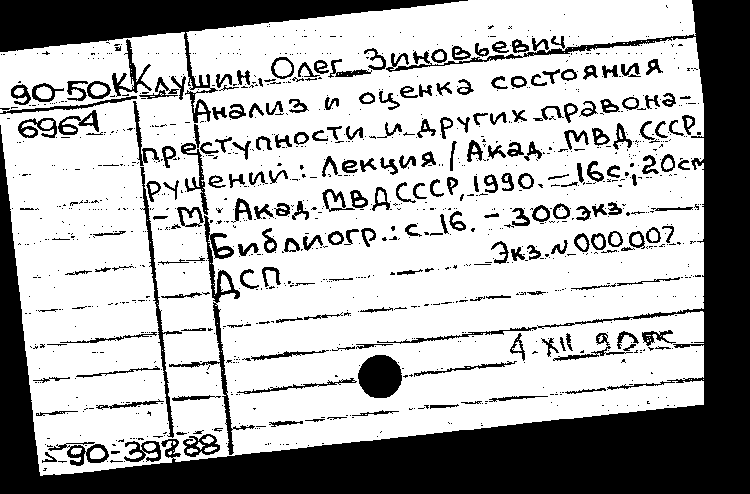 90-50К Клушин, Олег Зиновьевич
6964 Анализ и оценка состояния
преступности и других правона-
рушений: Лекция / Акад. МВД СССР.
- М.: Акад. МВД СССР, 1990. - 16с.; 20см
Библиогр.: с. 16. - 300 экз.
ДСП. Экз. № 000007
4. XII. 90
90-39288